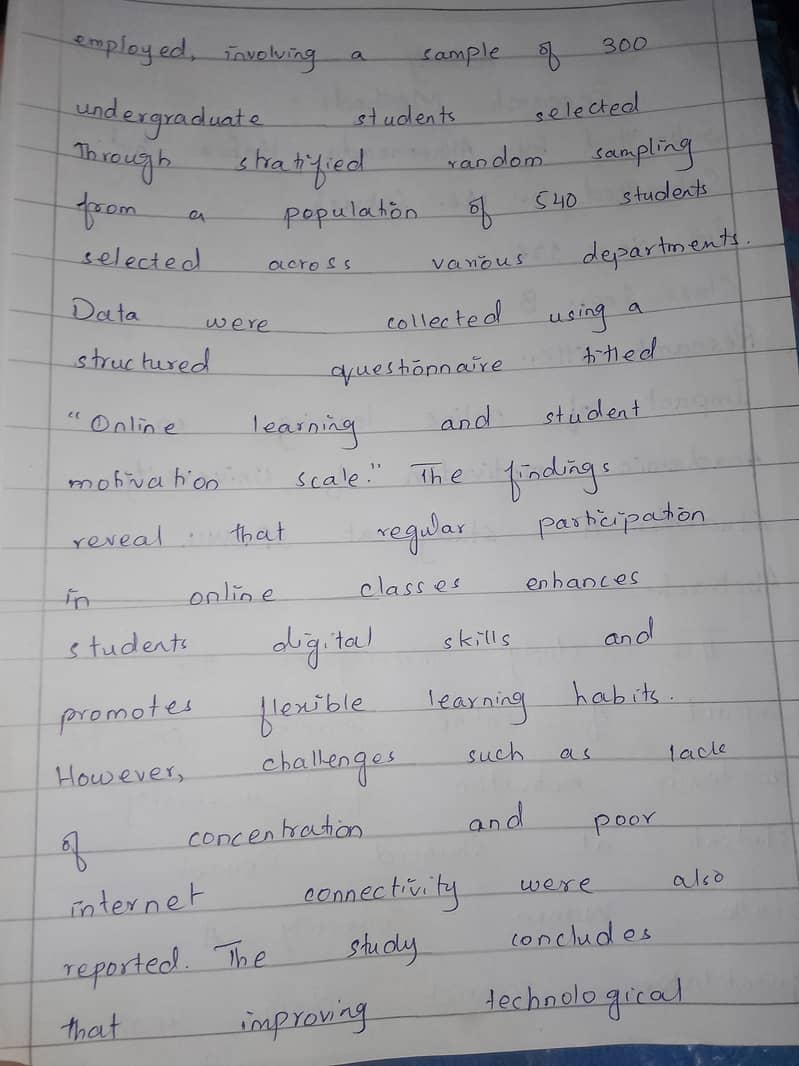 employed, involving a sample of 300
undergraduate students selected
Through stratified random sampling
from a population of 540 students
selected across various departments.
Data were collected using a
structured questionnaire titled
"Online learning and student
motivation scale." The findings
reveal that regular participation
in online classes enhances
students digital skills and
promotes flexible learning habits.
However, challenges such as lack
of concentration and poor
internet connectivity were also
reported. The study concludes
that improving technological